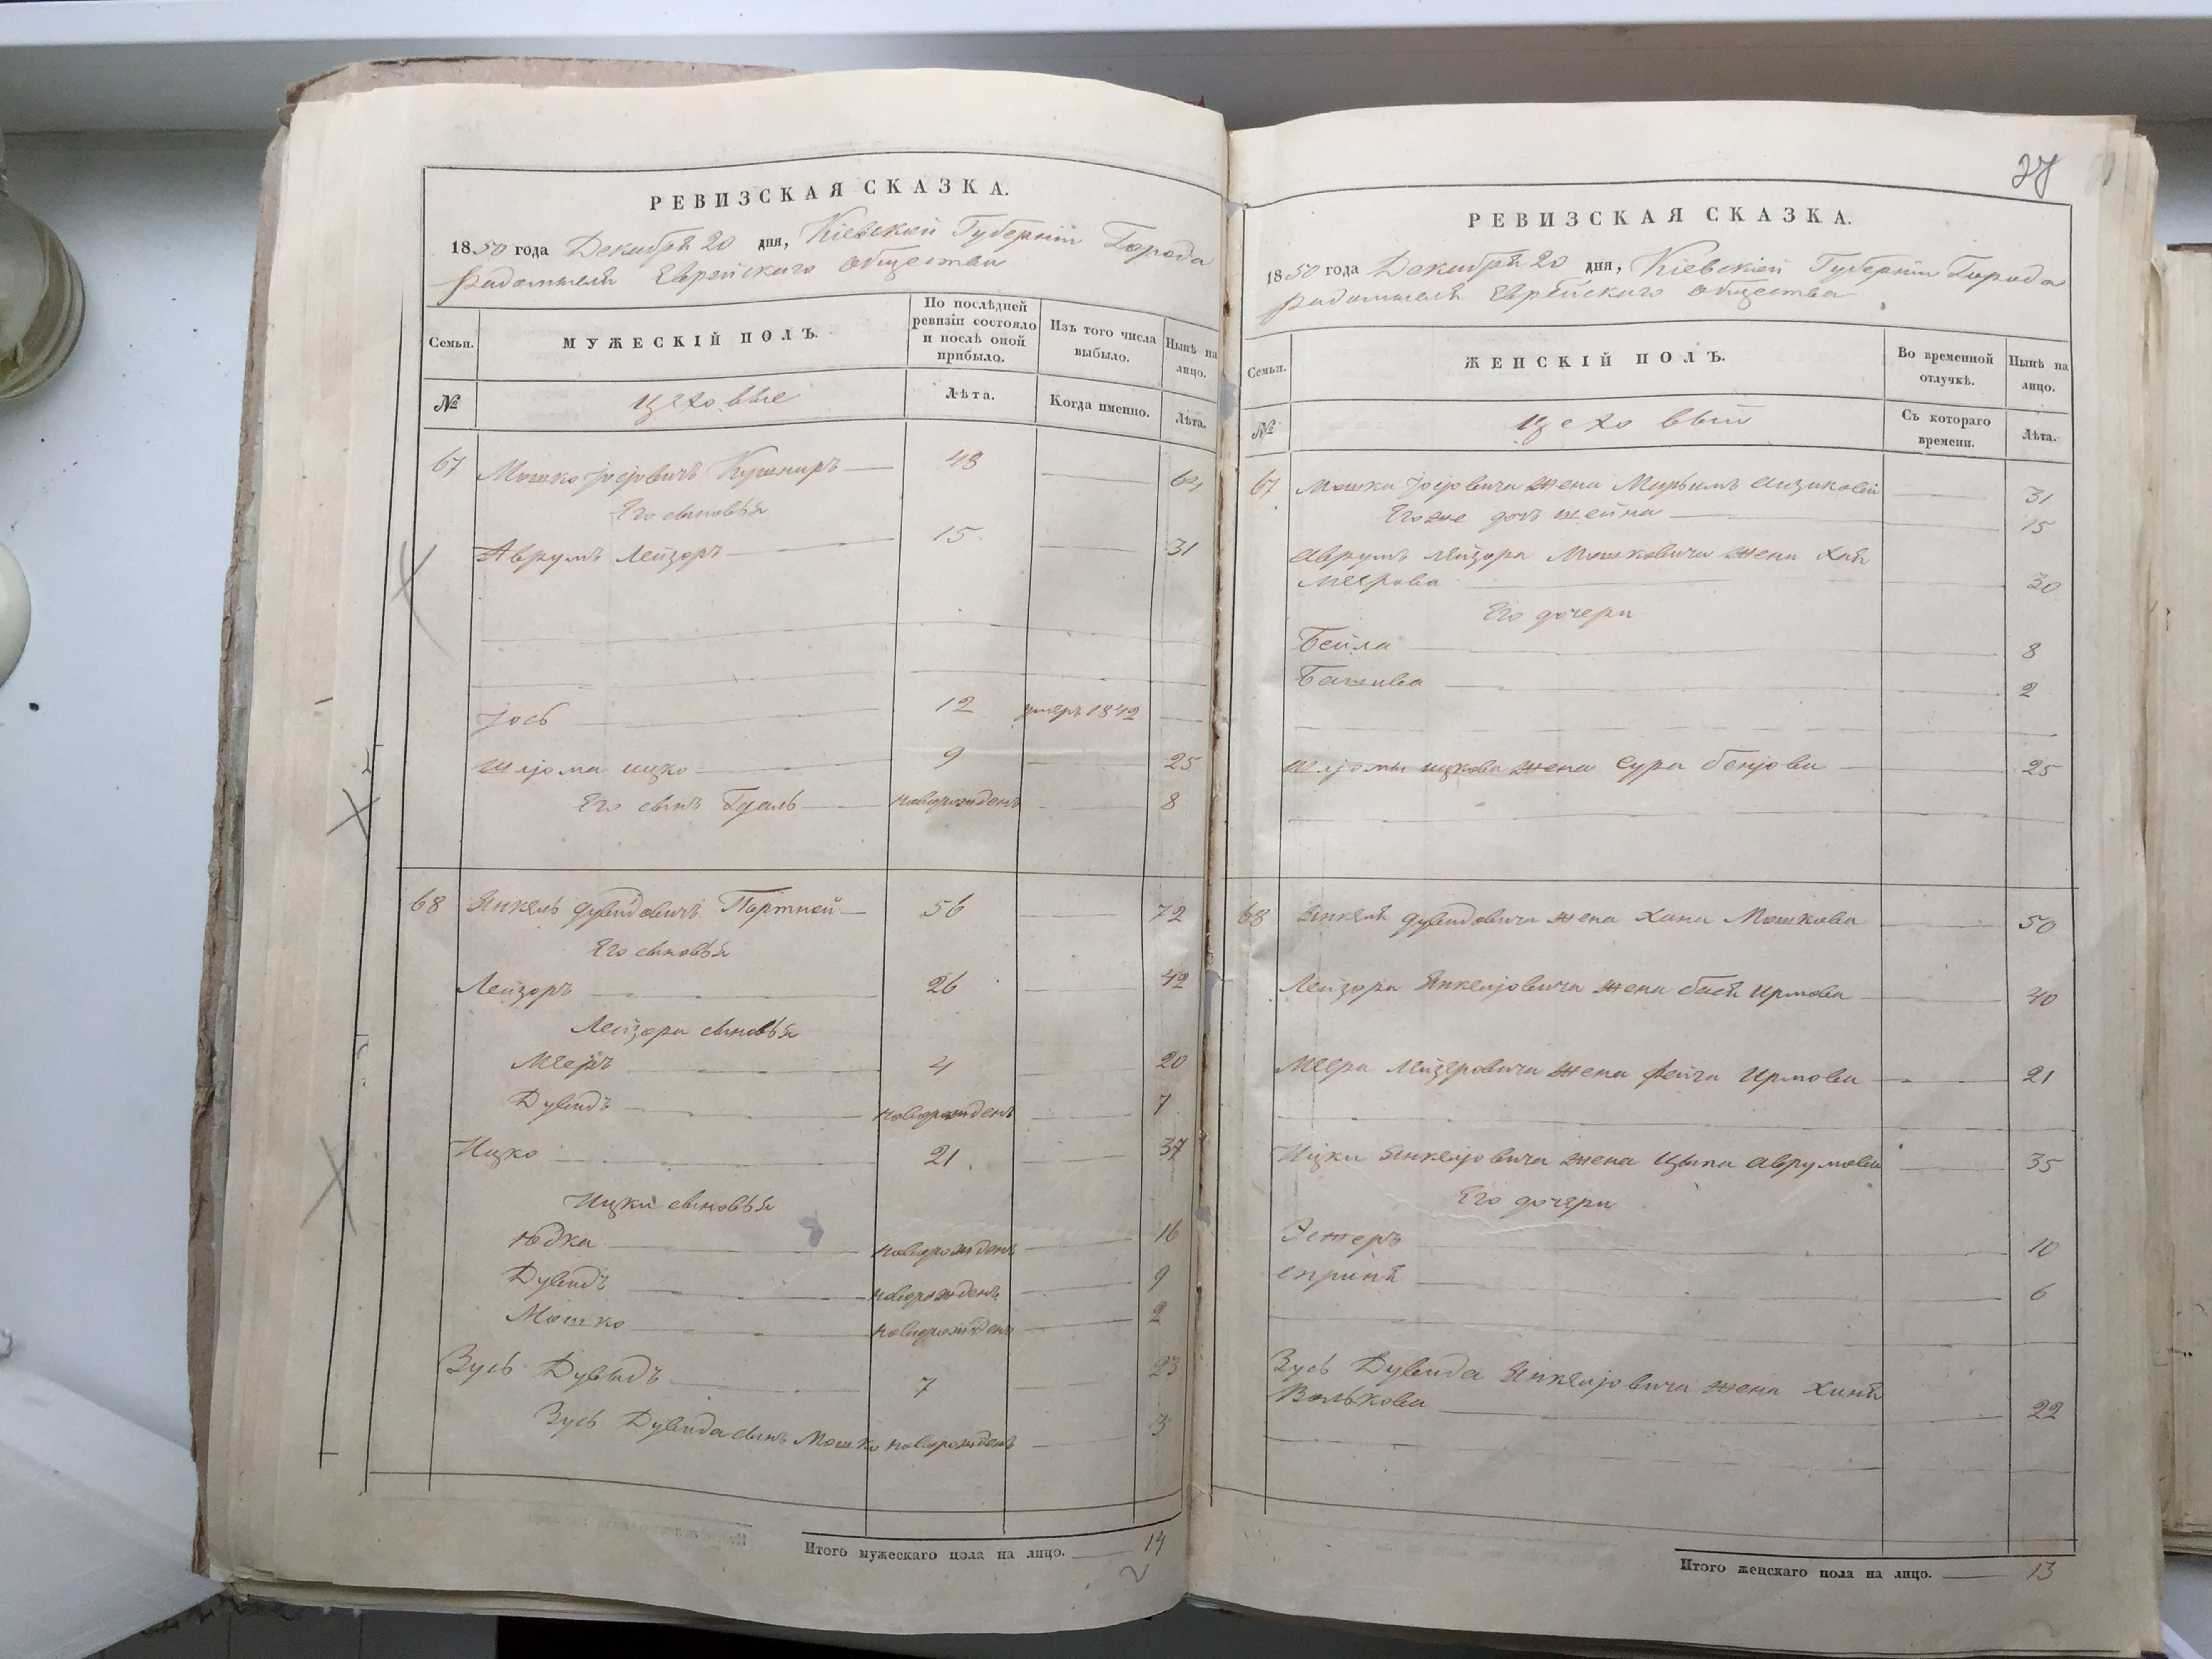 РЕВИЗСКАЯ СКАЗКА.
1850 года Декабря 20 дня, Кіевской Губерніи Города
Радомысля Еврейского общества
Семьи.
МУЖЕСКІЙ ПОЛЪ.
По послѣдней ревизіи состояло и послѣ оной прибыло.
Изъ того числа выбыло.
Нынѣ на лицо.
№
цеховые
Лѣта.
Когда именно.
Лѣта.
67 Мошко Іосіовичъ Кушниръ 48 64
Его сыновья
Аврумъ Лейзоръ 15 31
Іось 12 умеръ 1842
Шліома ицко 9 25
Его сынъ новорожденъ 8
68 Янкель Дувидовичъ Портной 56 72
Его сыновья
Лейзоръ 26 42
Лейзора сыновья
Мееръ 4 20
Дувидъ новорожденъ 7
Ицко 21 37
Ицки сыновья
Юдка новорожденъ 16
Дувидъ новорожденъ 9
Мошко новорожденъ 2
Зусь Дувидъ 7 23
Зусь Дувида сынъ Мошко новорожденъ 3
Итого мужескаго пола на лицо. 14
2
37
РЕВИЗСКАЯ СКАЗКА.
1850 года Декабря 20 дня, Кіевской Губерніи Города
Радомысля Еврейского общества
Семьи.
ЖЕНСКІЙ ПОЛЪ.
Во временной отлучкѣ.
Нынѣ на лицо.
№
цеховыи
Съ котораго времени.
Лѣта.
67 Мошки Іосіовича жена Мирьимъ 31
Его же дочь шейна 15
Аврумъ Лейзора Мошковича жена Хая
Меерова 30
Его дочери
Бейла 8
Башива 2
Шліомы ицкова жена Сура беніова 25
68 Янкеля дувидовича жена Хана Мошкова 50
Лейзора Янкеліовича жена бася Ирмова 40
Меера Лейзеровича жена фейга Ирмова 21
Ицки Янкеліовича жена Цыпа Аврумова 35
Его дочери
Эстеръ 10
6
Зусь Дувида Янкеліовича жена Хиня
Волькова 22
Итого женскаго пола на лицо. 13